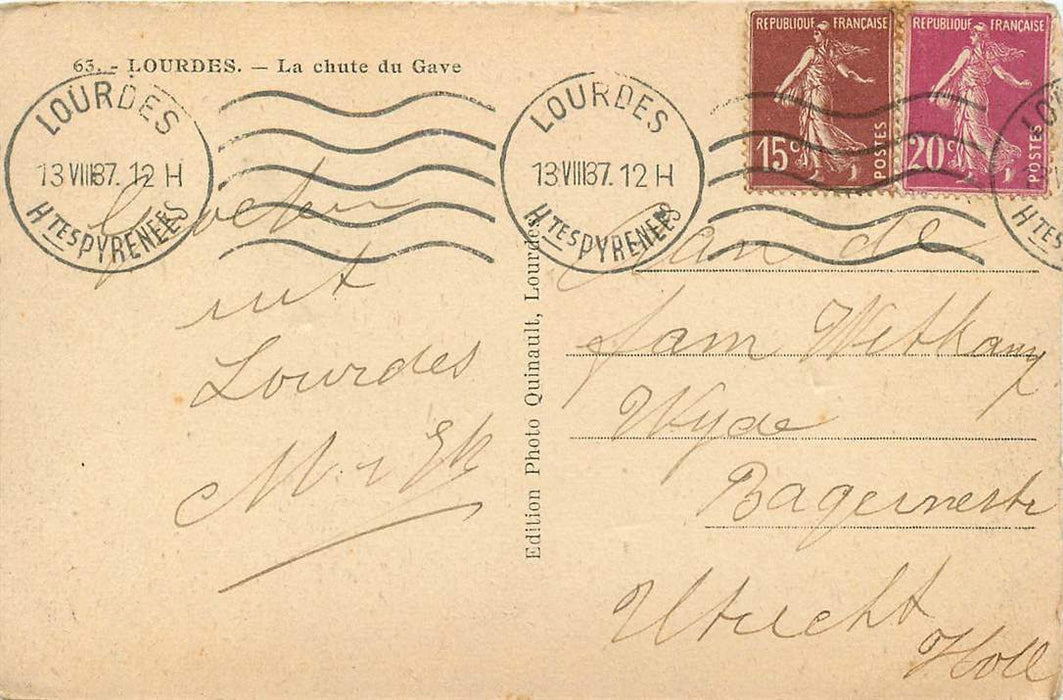 63. - LOURDES. — La chute du Gave
LOURDES
13 VIII 37. 12 H
HTES PYRENEES
LOURDES
13 VIII 37. 12 H
HTES PYRENEES
REPUBLIQUE FRANÇAISE
15c
POSTES
REPUBLIQUE FRANÇAISE
20c
POSTES
LO
HTES
Groeten
uit
Lourdes
M
Edition Photo Quinault, Lourdes
Aan de
fam Witkamp
Wyde
Bagernestr
Utrecht
Holl